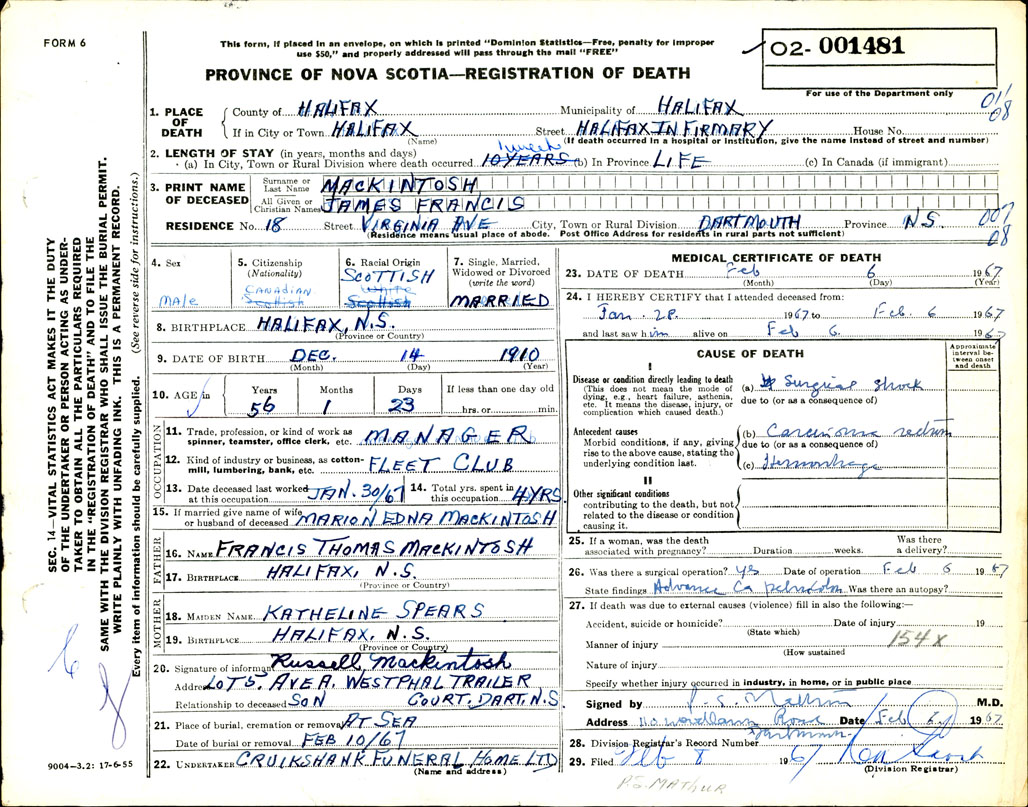 FORM 6
This form, if placed in an envelope, on which is printed "Dominion Statistics—Free, penalty for improper
use $50," and properly addressed will pass through the mail "FREE"
PROVINCE OF NOVA SCOTIA—REGISTRATION OF DEATH
02- 001481
For use of the Department only
SEC. 14—VITAL STATISTICS ACT MAKES IT THE DUTY
OF THE UNDERTAKER OR PERSON ACTING AS UNDER-
TAKER TO OBTAIN ALL THE PARTICULARS REQUIRED
IN THE "REGISTRATION OF DEATH" AND TO FILE THE
SAME WITH THE DIVISION REGISTRAR WHO SHALL ISSUE THE BURIAL PERMIT.
WRITE PLAINLY WITH UNFADING INK. THIS IS A PERMANENT RECORD.
Every item of information should be carefully supplied. (See reverse side for instructions.)
1. PLACE OF DEATH
County of HALIFAX Municipality of HALIFAX
01/
08
If in City or Town HALIFAX Street HALIFAX INFIRMARY House No.
(Name) (If death occurred in a hospital or institution, give the name instead of street and number)
2. LENGTH OF STAY (in years, months and days)
1 week
(a) In City, Town or Rural Division where death occurred 10 YEARS (b) In Province LIFE (c) In Canada (if immigrant)
3. PRINT NAME OF DECEASED
Surname or Last Name MACKINTOSH
All Given or Christian Names JAMES FRANCIS
RESIDENCE No. 18 Street VIRGINIA AVE City, Town or Rural Division DARTMOUTH Province N.S.
007
08
(Residence means usual place of abode. Post Office Address for residents in rural parts not sufficient)
4. Sex
Male
5. Citizenship
(Nationality)
CANADIAN
Scottish
6. Racial Origin
SCOTTISH
White
Scottish
7. Single, Married,
Widowed or Divorced
(write the word)
MARRIED
8. BIRTHPLACE HALIFAX, N.S.
(Province or Country)
9. DATE OF BIRTH DEC. 14 1910
(Month) (Day) (Year)
10. AGE in
Years Months Days If less than one day old
56 1 23 hrs. or min.
OCCUPATION
11. Trade, profession, or kind of work as
spinner, teamster, office clerk, etc. MANAGER
12. Kind of industry or business, as cotton-
mill, lumbering, bank, etc. FLEET CLUB
13. Date deceased last worked
at this occupation JAN. 30/67
14. Total yrs. spent in
this occupation 4 YRS
15. If married give name of wife
or husband of deceased MARION EDNA MACKINTOSH
FATHER
16. NAME FRANCIS THOMAS MACKINTOSH
17. BIRTHPLACE HALIFAX, N.S.
(Province or Country)
MOTHER
18. MAIDEN NAME KATHELINE SPEARS
19. BIRTHPLACE HALIFAX, N.S.
(Province or Country)
20. Signature of informant Russell Mackintosh
Address LOT 5, AVE A, WESTPHAL TRAILER
Relationship to deceased SON COURT, DART, N.S
21. Place of burial, cremation or removal AT SEA
Date of burial or removal FEB 10/67
22. UNDERTAKER CRUIKSHANK FUNERAL HOME LTD
(Name and address)
9004—3.2: 17-6-55
MEDICAL CERTIFICATE OF DEATH
23. DATE OF DEATH Feb 6 1967
(Month) (Day) (Year)
24. I HEREBY CERTIFY that I attended deceased from:
Jan. 28. 1967 to Feb. 6 1967
and last saw him alive on Feb 6. 1967
CAUSE OF DEATH
Approximate
interval be-
tween onset
and death
I
Disease or condition directly leading to death
(This does not mean the mode of
dying, e.g., heart failure, asthenia,
etc. It means the disease, injury, or
complication which caused death.)
(a) Surgical shock
due to (or as a consequence of)
Antecedent causes
Morbid conditions, if any, giving
rise to the above cause, stating the
underlying condition last.
(b) Carcinoma rectum
due to (or as a consequence of)
(c) Hemorrhage
II
Other significant conditions
contributing to the death, but not
related to the disease or condition
causing it.
25. If a woman, was the death
associated with pregnancy? Duration weeks. Was there
a delivery?
26. Was there a surgical operation? yes Date of operation Feb 6 1967
State findings Advance Ca Was there an autopsy?
27. If death was due to external causes (violence) fill in also the following:—
Accident, suicide or homicide? Date of injury 19
(State which)
Manner of injury 154X
(How sustained
Nature of injury
Specify whether injury occurred in industry, in home, or in public place
Signed by M.D.
Address Road Date Feb 6 1967
Dartmouth
28. Division Registrar's Record Number
29. Filed Feb 8 1967
(Division Registrar)
P.S. MATHUR